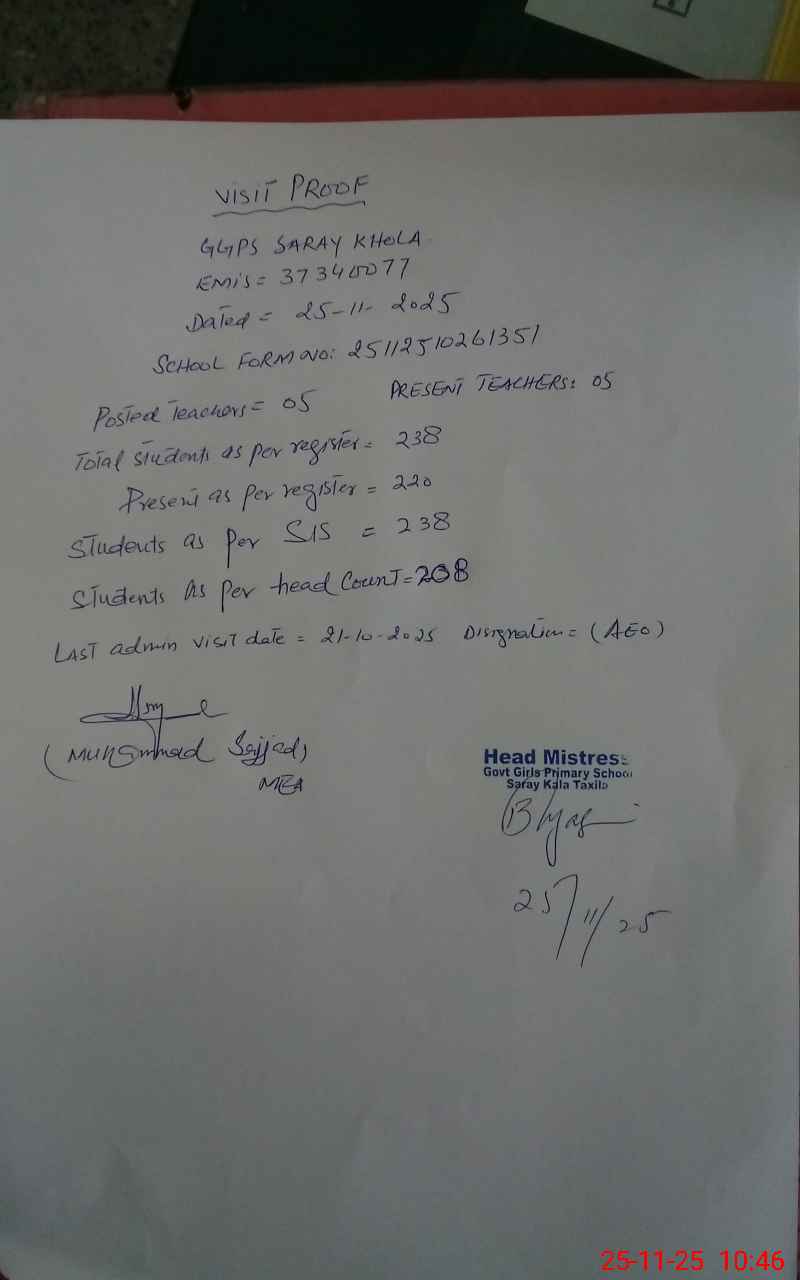 VISIT PROOF
GGPS SARAY KHOLA
EMIS = 37340077
Dated = 25-11-2025
SCHOOL FORM NO: 25112510261351
Posted Teachers = 05 PRESENT TEACHERS: 05
Total Students as per register = 238
Present as per register = 220
Students as per SIS = 238
Students as per head Count = 208
LAST admin visit date = 21-10-2025 Disignation = (AEO)
(Muhammad Sajjad)
MEA
Head Mistress
Govt Girls Primary School
Saray Kala Taxila
25/11/25
25-11-25 10:46